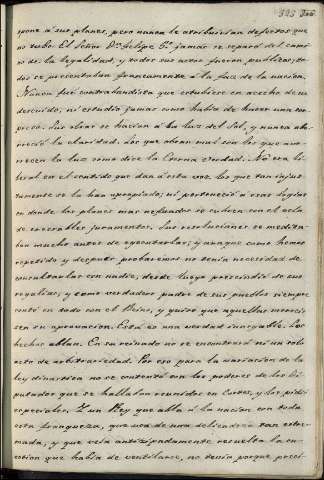 325
pone á sus planes, pero nunca le atribuirían defectos que
no tubo. El Señor Dn. Felipe 5º jamas se separó del cami-
no de la legalidad, y todos sus actos fueron publicos, to-
dos se presentaban francamente á la faz de la nacion.
Nunca fué contrabandista que estubiese en acecho de un
descuido, ni estudió jamas como habia de hacer una sor-
presa. Sus obras se hacian á la luz del Sol, y nunca abo-
rreció la claridad. Los que obran mal son los que abo-
rrecen la luz como dice la Eterna verdad. No era li-
beral en el sentido que dan á esta voz los que tan injus-
tamente se la han apropiado; ni perteneció á esas logias
en donde los planes mas nefandos se cubren con el velo
de execrables juramentos. Sus resoluciones se medita-
ban mucho antes de egecutarlas; y aunque como hemos
repetido y despues probaremos no tenia necesidad de
consultarlas con nadie, desde luego prescindió de sus
regalias, y como verdadero padre de sus pueblos siempre
contó en todo con el Reino, y quiso que aquellas merecie-
sen su aprovacion. Esta es una verdad innegable. Los
hechos ablan. En su reinado no se encontrará ni un solo
acto de arbitrariedad. Por eso para la variacion de la
ley dinastica no se contentó con los poderes de los Di-
putados que se hallaban reunidos en Cortes, y los pidió
especiales. Y un Rey que abla á la nacion con toda
esta franqueza, que usa de una delicadeza tan estre-
mada, y que veia anticipadamente resuelta la cu-
estion que habia de ventilarse, no tenia porque preci-